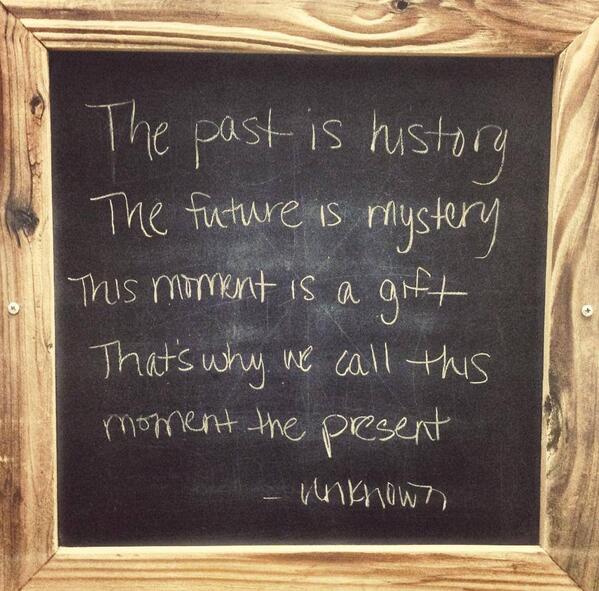 The past is history
The future is mystery
This moment is a gift
That's why we call this
moment the present
- unknown